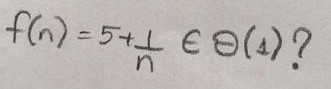 f(n) = 5 + 1/n ∈ Θ(1)?